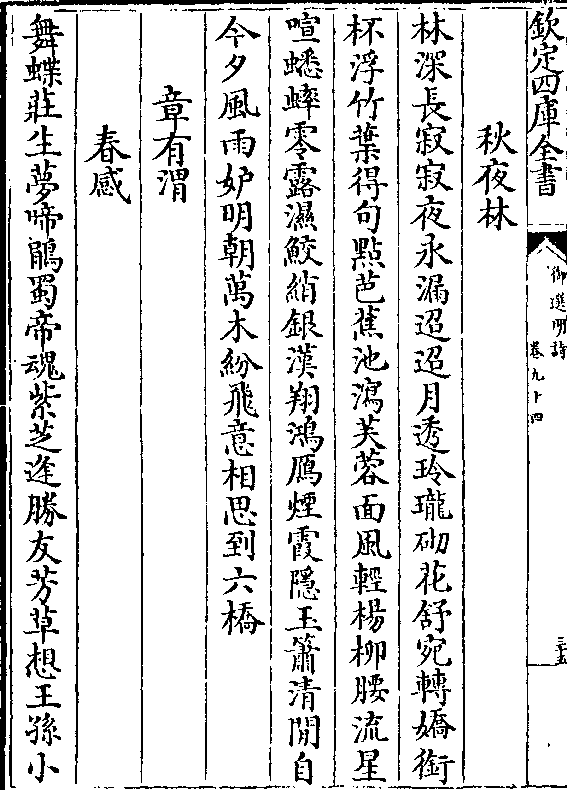 欽定四庫全書
御選明詩
卷九十四
三五
秋夜林
林深長寂寂夜永漏迢迢月透玲瓏砌花舒宛轉嬌銜
杯浮竹葉得句點芭蕉池瀉芙蓉面風輕楊柳腰流星
喧蟋蟀零露濕鮫綃銀漢翔鴻鴈煙霞隱玉簫清閒自
今夕風雨妒明朝萬木紛飛意相思到六橋
章有渭
春感
舞蝶莊生夢啼鵑蜀帝魂紫芝逢勝友芳草想王孫小